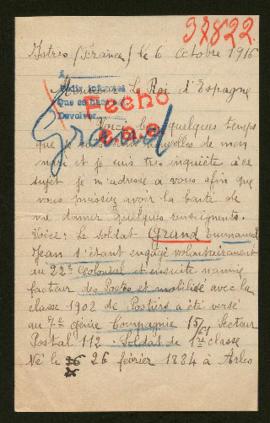 32822.
Istres (France) le 6 Octobre 1916
Monsieur Le Roi d'Espagne
Pedir informes
Devolver
Fecho
Grand
Voici quelques temps
que je nouvelles de mon
mari et je suis très inquiète à ce
sujet je m'adresse a vous afin que
vous puissiez avoir la bonté de
me donner quelques renseignements.
Voici: Le soldat Grand surnommé
Jean s'étant engagé volontairement
au 22e Colonial et ensuite nommé
facteur des Postes et mobilisé avec la
classe 1902 de Postiers a été versé
au 7e génie Compagnie 15/61 Secteur
Postal 112 - Soldat de 1re classe
Né le 26 février 1884 à Arles